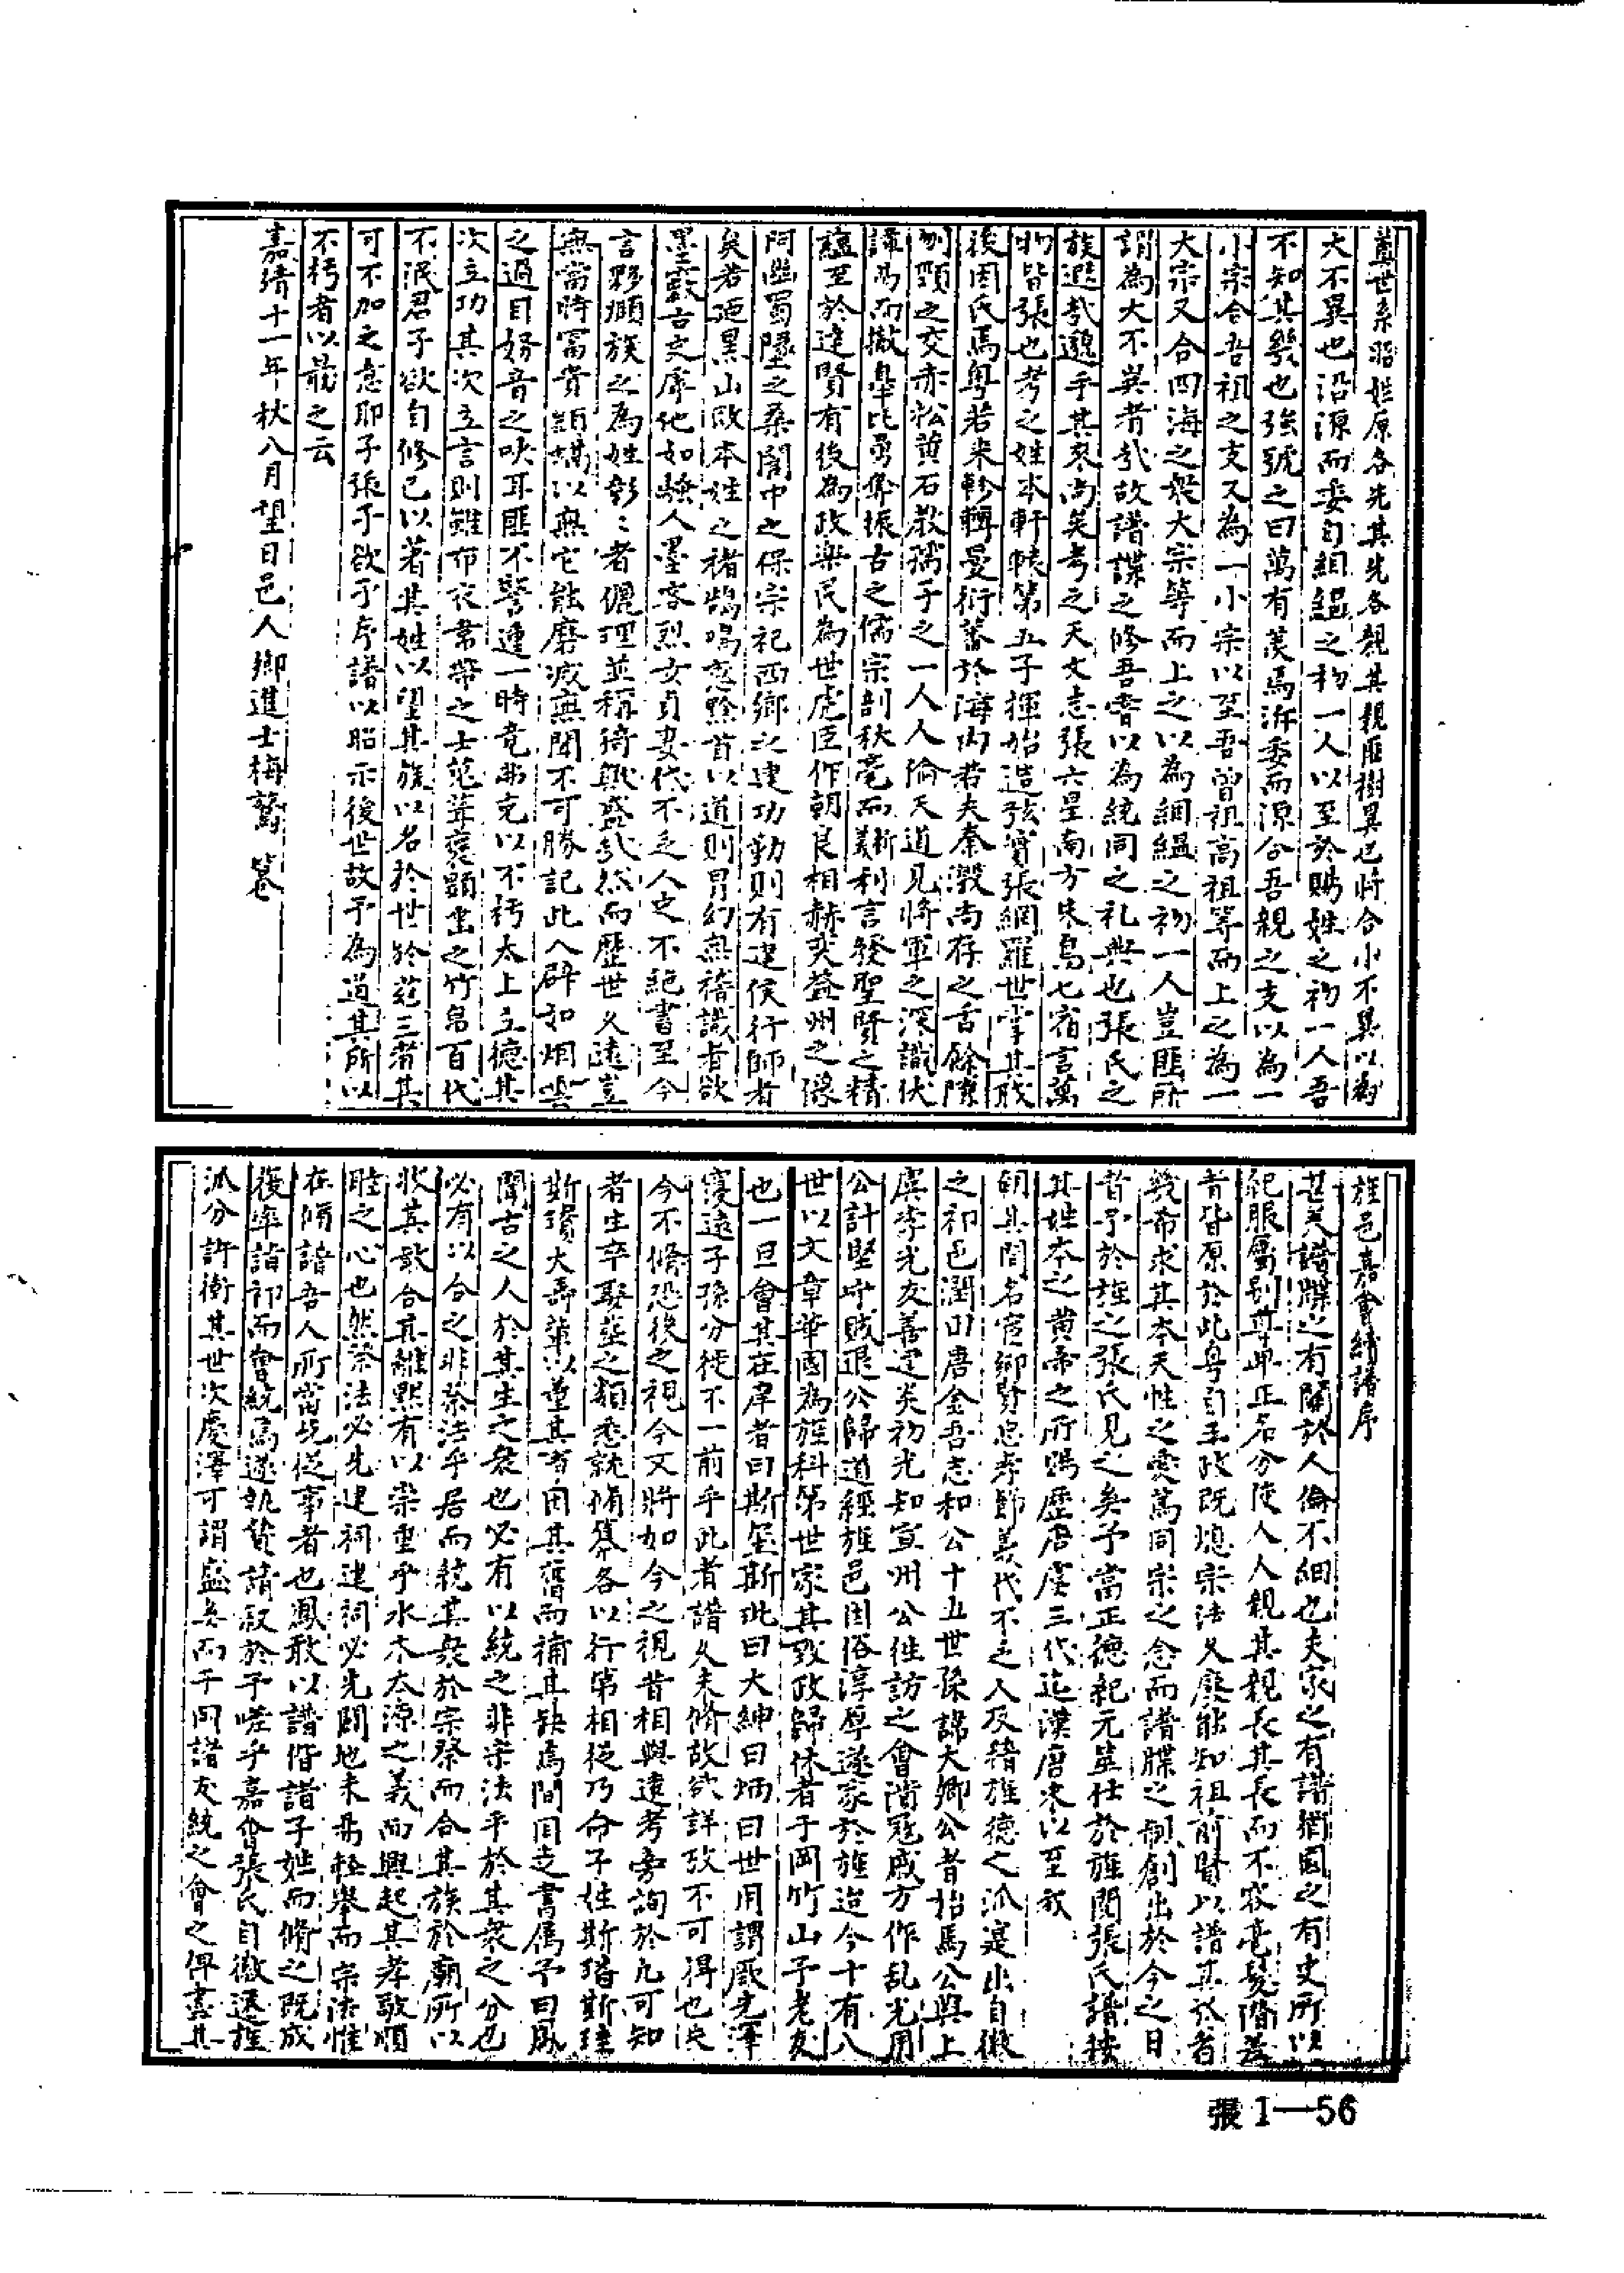 奠世系昭姓原各先其先各親其親匪樹異也將合小不異以為
大不異也沿源而委自絪縕之初一人以至於賜姓之初一人吾
不知其幾也強號之曰萬有羨焉泝委而源合吾親之支以為一
小宗合吾祖之支又為一小宗以至吾曾祖高祖等而上之為一
大宗又合四海之眾大宗等而上之以為絪縕之初一人豈匪所
謂為大不異者哉故譜諜之修吾嘗以為統同之礼典也張氏之
族遐哉邈乎其來尚矣考之天文志張六星南方朱鳥七宿言萬
物皆張也考之姓本軒轅第五子揮始造弦寔張網羅世掌其職
後因氏焉粵若來軫輯曼衍蕃於海內若夫秦溵尚存之舌餘陳
刎頸之交赤松黃石教孺子之一人人倫天道見將軍之深識伏
講易而撤皋比勇奪振古之儒宗剖秋毫而斷利言發聖賢之精
蘊至於達賢有後為政樂民為世虎臣作朝良相赫奕益州之
問幽蜀墜之桑閣中之保宗祀西鄉之建功勳則有建侯行師者
矣若迺黑山改本姓之褚鵲鳴惑黔首以道則胃幻無稽識者欲
墨竅古文庫他如騷人墨客烈女貞妻代不乏人史不絕書至今
言夥纈族之為姓彰〻者儷理並稱猗歟盛哉然而歷世久遠豈
無當時富貴顯以無它能磨滅無聞不可勝記此人辟如烟雲
之過目好音之吹耳匪不警連一時竟弗克以不朽太上立德其
次立功其次立言則雖布衣韋帶之士蒐葺裒顯垂之竹帛百代
不泯君子欲自修己以著其姓以望其族以名於世於茲三者其
可不加之意耶子張子欲予序譜以昭示後世故予為道其所以
不朽者以最之云
嘉靖十一年秋八月望日邑人鄉進士梅鷟 篹
旌邑嘉會續譜序
甚矣譜牒之有關於人倫不細也夫家之有譜猶國之有史所以
紀服屬別尊卑正名分使人人親其親長其長而不容毫髮階差
者皆原於此粵自王政既熄宗法久廢能知祖前賢以譜其於者
幾希求其本天性之愛篤同宗之念而譜牒之制創出於今之日
昔予於旌之張氏見之矣予當正德紀元筮仕於旌閱張氏譜按
其姓本之黃帝之所賜歷唐虞三代迄漢唐宋以至我
朝其間名宦鄉賢忠孝節義代不乏人及稽旌德之派寔出自徽
之祁邑潤田唐金吾志和公十五世孫諱大卿公者始焉公與上
虞李光友善建炎初光知宣州公往訪之會潛寇戚方作乱光用
公計堅守賊退公歸道經旌邑因俗淳厚遂家於旌迨今十有八
世以文章華國為旌科第世家其致政歸休者于岡竹山予老友
也一旦會其在庠者曰斯筌斯玭曰大紳曰炳曰世用謂厥先澤
寖遠子孫分徙不一前乎此者譜久未脩故欲詳攷不可得也失
今不脩恐後之視今又將如今之視昔相與遠考旁詢於凡可知
者生卒娶葬之類悉就脩纂各以行第相從乃命子姓斯瑎斯瑋
斯瓚大壽輩以董其者因其舊而補其缺焉間因走書屬予曰夙
聞古之人於其生之眾也必有以統之非宗法乎於其衆之分也
必有以合之非祭法乎居而統其衆於宗祭而合其族於廟所以
狀其散合其離點有以崇重乎水木本源之義而興起其孝敬順
睦之心也然祭法必先建祠建祠必先闢地未易輕舉而宗法惟
在脩譜吾人所當先從事者也夙敢以譜偕諸子姓而脩之既成
後率詣祠而會統焉遂執贄請敘於予嗟乎嘉會張氏自徽遷旌
派分許衛其世次慶澤可謂盛矣而于岡諸友統之會之俾盡其
張 I—56